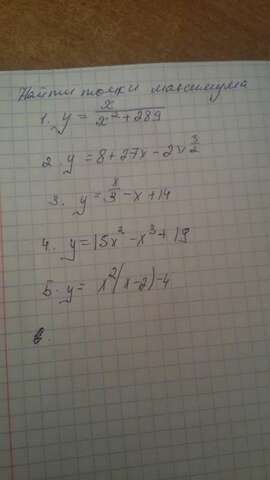 Найти точки максимума
1. y = x/(x² + 289)
2. y = 8 + 27x - 2x^(3/2)
3. y = x/3 - x + 14
4. y = 15x² - x³ + 19
5. y = x²(x-2)-4
6.